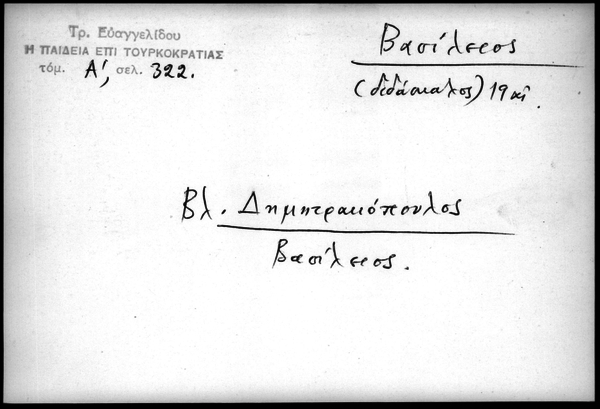 Τρ. Εὐαγγελίδου
Η ΠΑΙΔΕΙΑ ΕΠΙ ΤΟΥΡΚΟΚΡΑΤΙΑΣ
τόμ. Α', σελ. 322.
Βασίλειος
(διδάσκαλος) 19 αἰ.
Βλ. Δημητρακόπουλος
Βασίλειος.